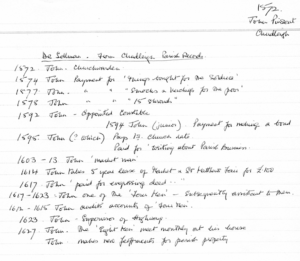 1572.
John Present
Chudleigh
The Sellman. From Chudleigh Parish Records
1572 John. Churchwarden
1574 John Payment for 'things bought for the soldiers'
1577 John " " for the poor'
1578 John " " '15 Shrouds'
1592 John - appointed Constable
1594 John (junior) Payment for making a bond
1595 John (? which) Pays 13. Church rate
Paid for 'writing about Parish business.
1603 - 13 John 'market man'
1614 John takes 5 year lease of Market & St Martins Fair for £100
1617 John 'paid for engrossing deed'
1617-1623 - John one of the 'Four Men' - Subsequently assistant to them.
1612 - 1615 John audits accounts of Four Men.
1623 John - Supervisor of Highway.
1627. John - The 'Eight Men' meet monthly at his house
John makes new feoffments for parish property